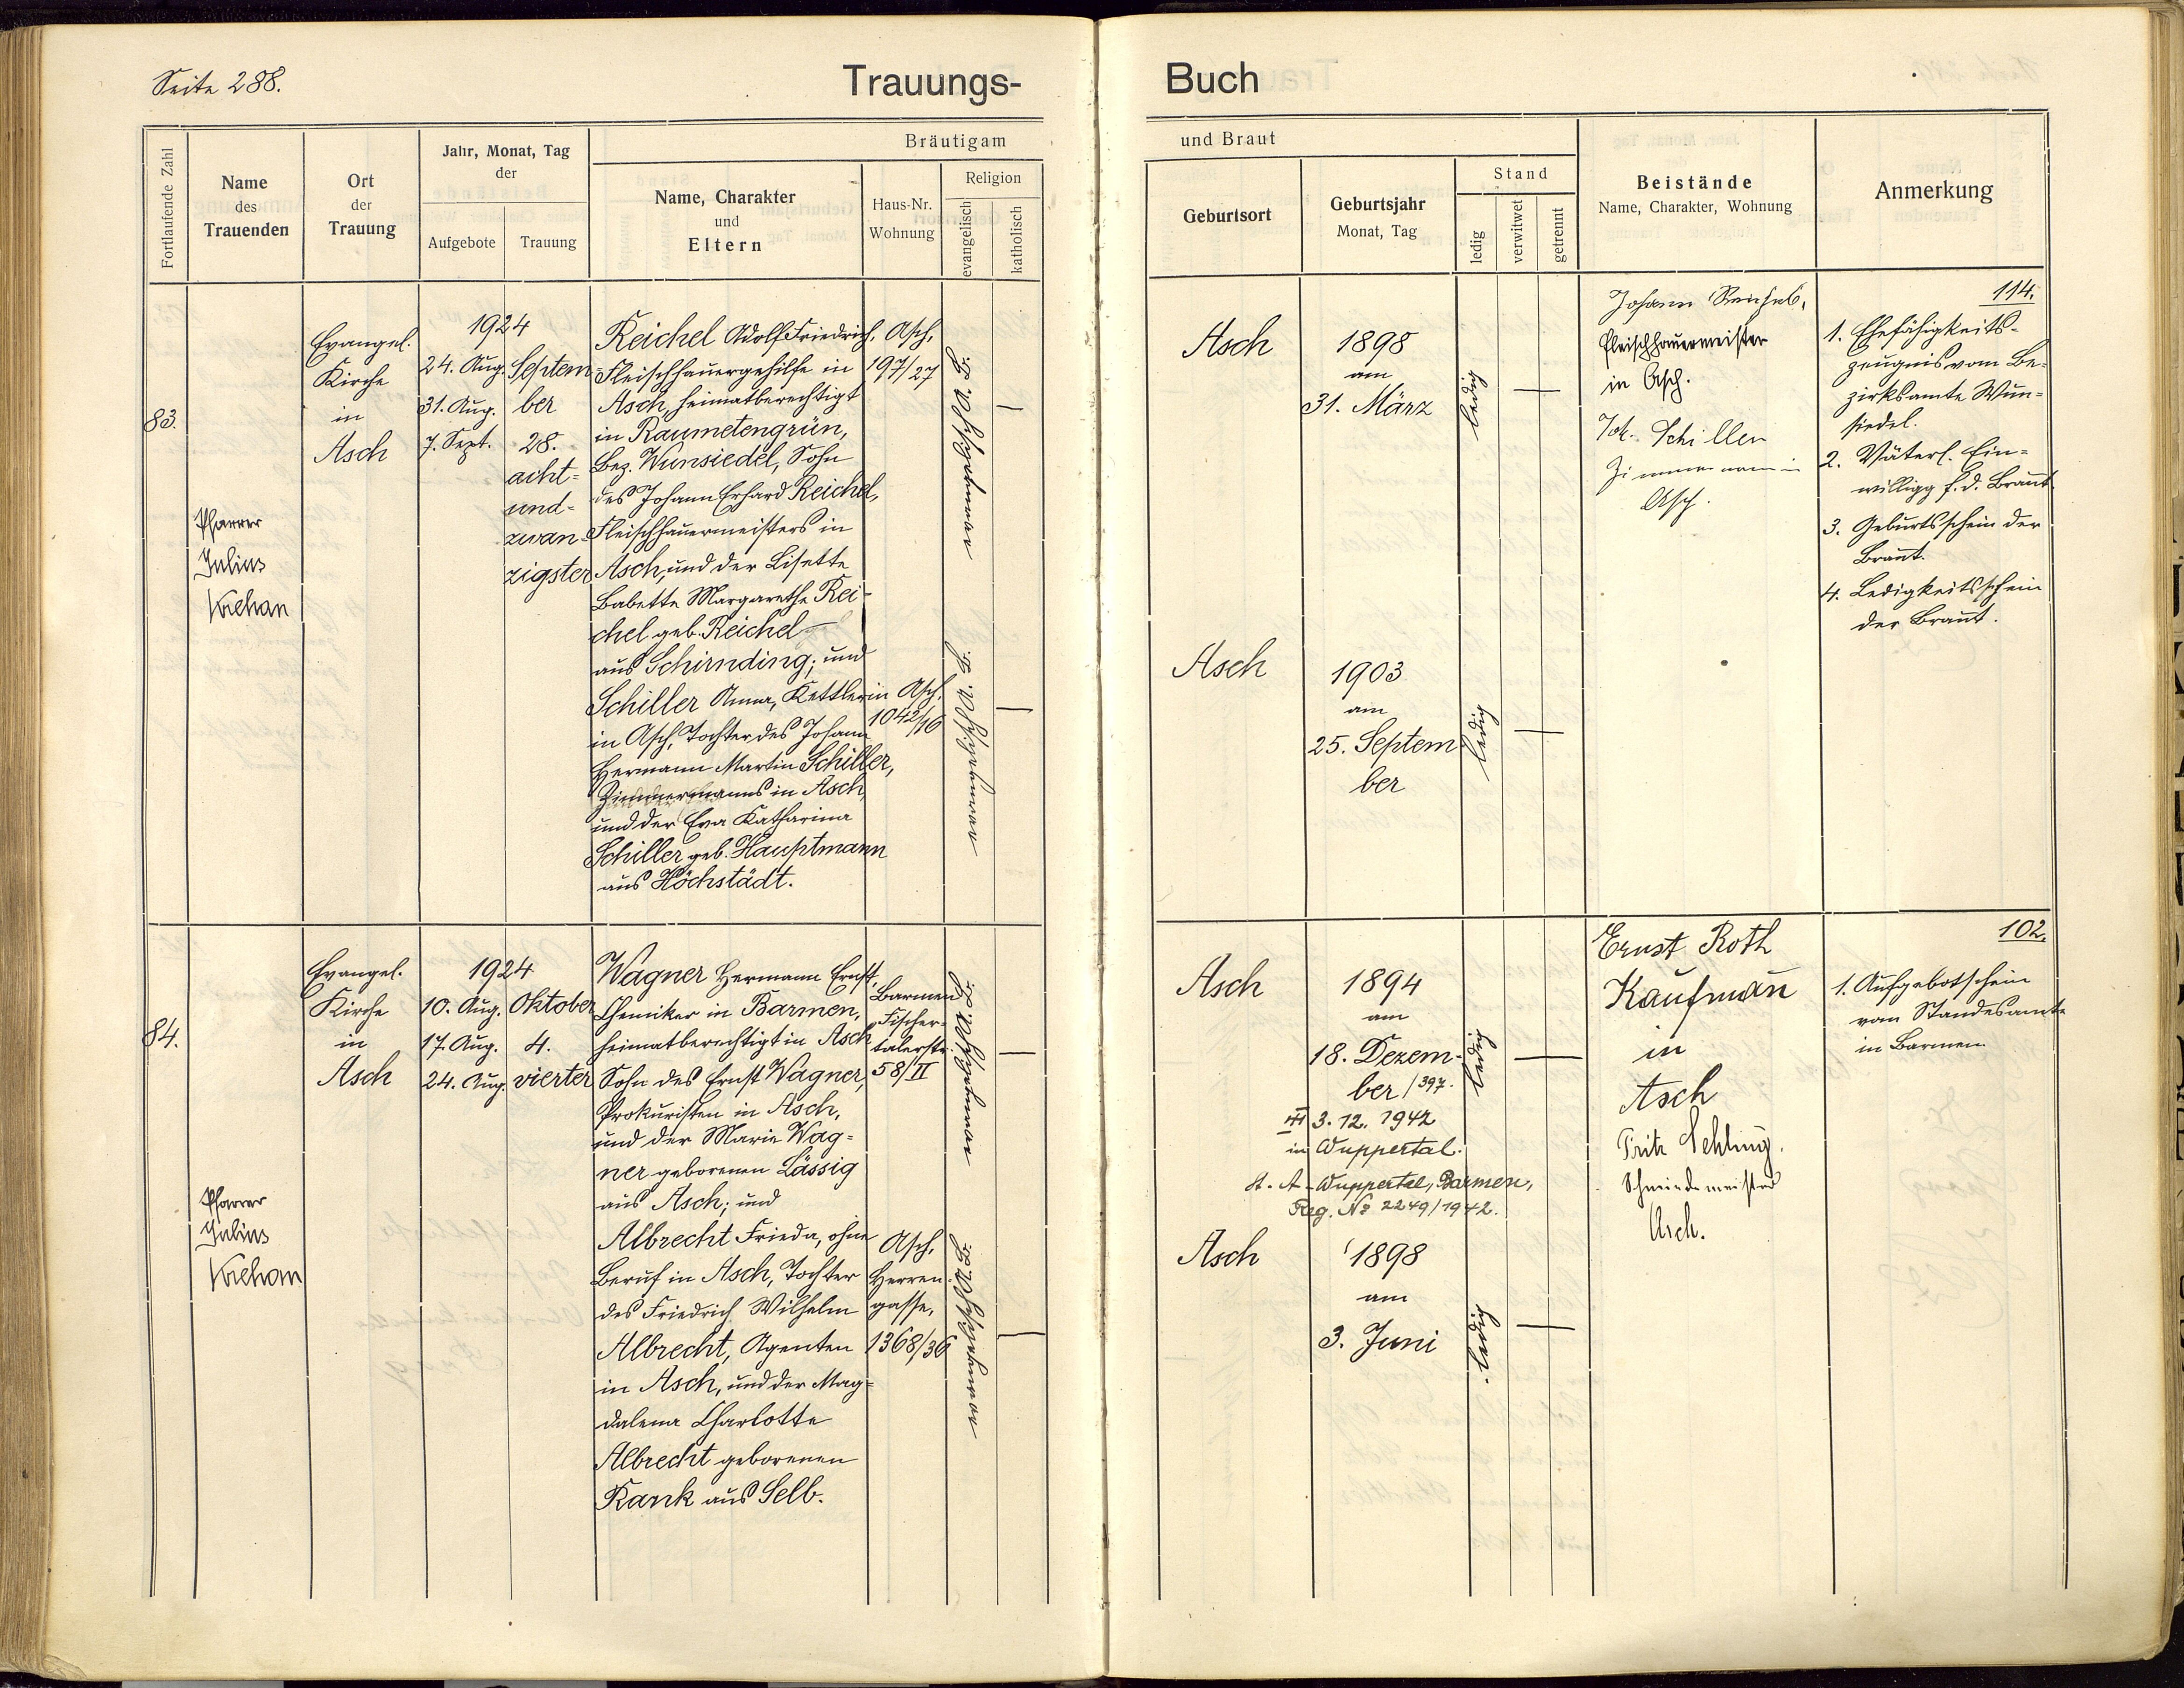 Seite 288.
Trauungs-
Buch
Fortlaufende Zahl
Name
des
Trauenden
Ort
der
Trauung
Jahr, Monat, Tag
der
Aufgebote
Trauung
Bräutigam
Name, Charakter
und
Eltern
Haus-Nr.
Wohnung
Religion
evangelisch
katholisch
und Braut
Geburtsort
Geburtsjahr
Monat, Tag
Stand
ledig
verwitwet
getrennt
Beistände
Name, Charakter, Wohnung
Anmerkung
83.
Pfarrer
Julius
Krehan
Evangel.
Kirche
in
Asch
1924
24. Aug.
31. Aug.
7. Sept.
Septem-
ber
28.
acht-
und-
zwan-
zigster
Reichel Adolf Friedrich,
Fleischhauergehilfe in
Asch, heimatberechtigt
in Raumetengrün,
Bez. Wunsiedel, Sohn
des Johann Erhard Reichel,
Fleischhauermeisters in
Asch, und der Lisette
Babette Margarethe Rei-
chel geb. Reichel
aus Schirnding; und
Schiller Anna, Kettlerin
in Asch, Tochter des Johann
Hermann Martin Schiller,
Zimmermanns in Asch,
und der Eva Katharina
Schiller geb. Hauptmann
aus Höchstädt.
Asch,
197/27
Asch,
1042/16
Asch
1898
am
31. März
ledig
Asch
1903
am
25. Septem
ber
ledig
Johann Reichel,
Fleischhauermeister
in Asch.
Joh. Schiller
Zimmermann in
Asch.
114.
1. Ehefähigkeits-
zeugnis vom Be-
zirksamte Wun-
siedel.
2. Väterl. Ein-
willigg f. d. Braut
3. Geburtsschein der
Braut.
4. Ledigkeitsschein
der Braut.
84.
Pfarrer
Julius
Krehan
Evangel.
Kirche
in
Asch
1924
10. Aug.
17. Aug.
24. Aug.
Oktober
4.
vierter
Wagner Hermann Ernst,
Chemiker in Barmen,
heimatberechtigt in Asch
Sohn des Ernst Wagner,
Prokuristen in Asch,
und der Marie Wag-
ner geborenen Lässig
aus Asch; und
Albrecht Frieda, ohne
Beruf in Asch, Tochter
des Friedrich Wilhelm
Albrecht, Agenten
in Asch, und der Mag-
dalena Charlotte
Albrecht geborenen
Rank aus Selb.
Barmen
Fischer-
talerstr.
58/II
Asch,
Herren-
gasse,
1368/36
Asch
1894
am
18. Dezem-
ber /397.
3. 12. 1942
in Wuppertal.
St. A. Wuppertal, Barmen,
Reg. No 2249/1942.
ledig
Asch
1898
am
3. Juni
ledig
Ernst Roth
Kaufmann
in
Asch
Fritz Sehling,
Schmiedemeister
Asch.
102.
1. Aufgebotschein
vom Standesamte
in Barmen.